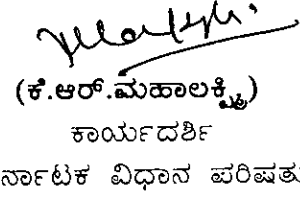 (ಕೆ.ಆರ್.ಮಹಾಲಕ್ಷ್ಮಿ)
ಕಾರ್ಯದರ್ಶಿ
ರ್ನಾಟಕ ವಿಧಾನ ಪರಿಷತು